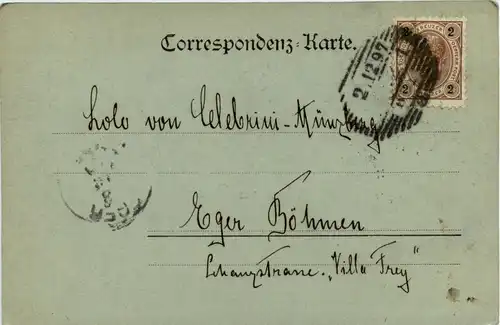 Correspondenz-Karte.
2
2.12.97
2 2
Lolo von Celebrini-Münzberg
Eger Böhmen
Schanzstrasse. "Villa Frey"